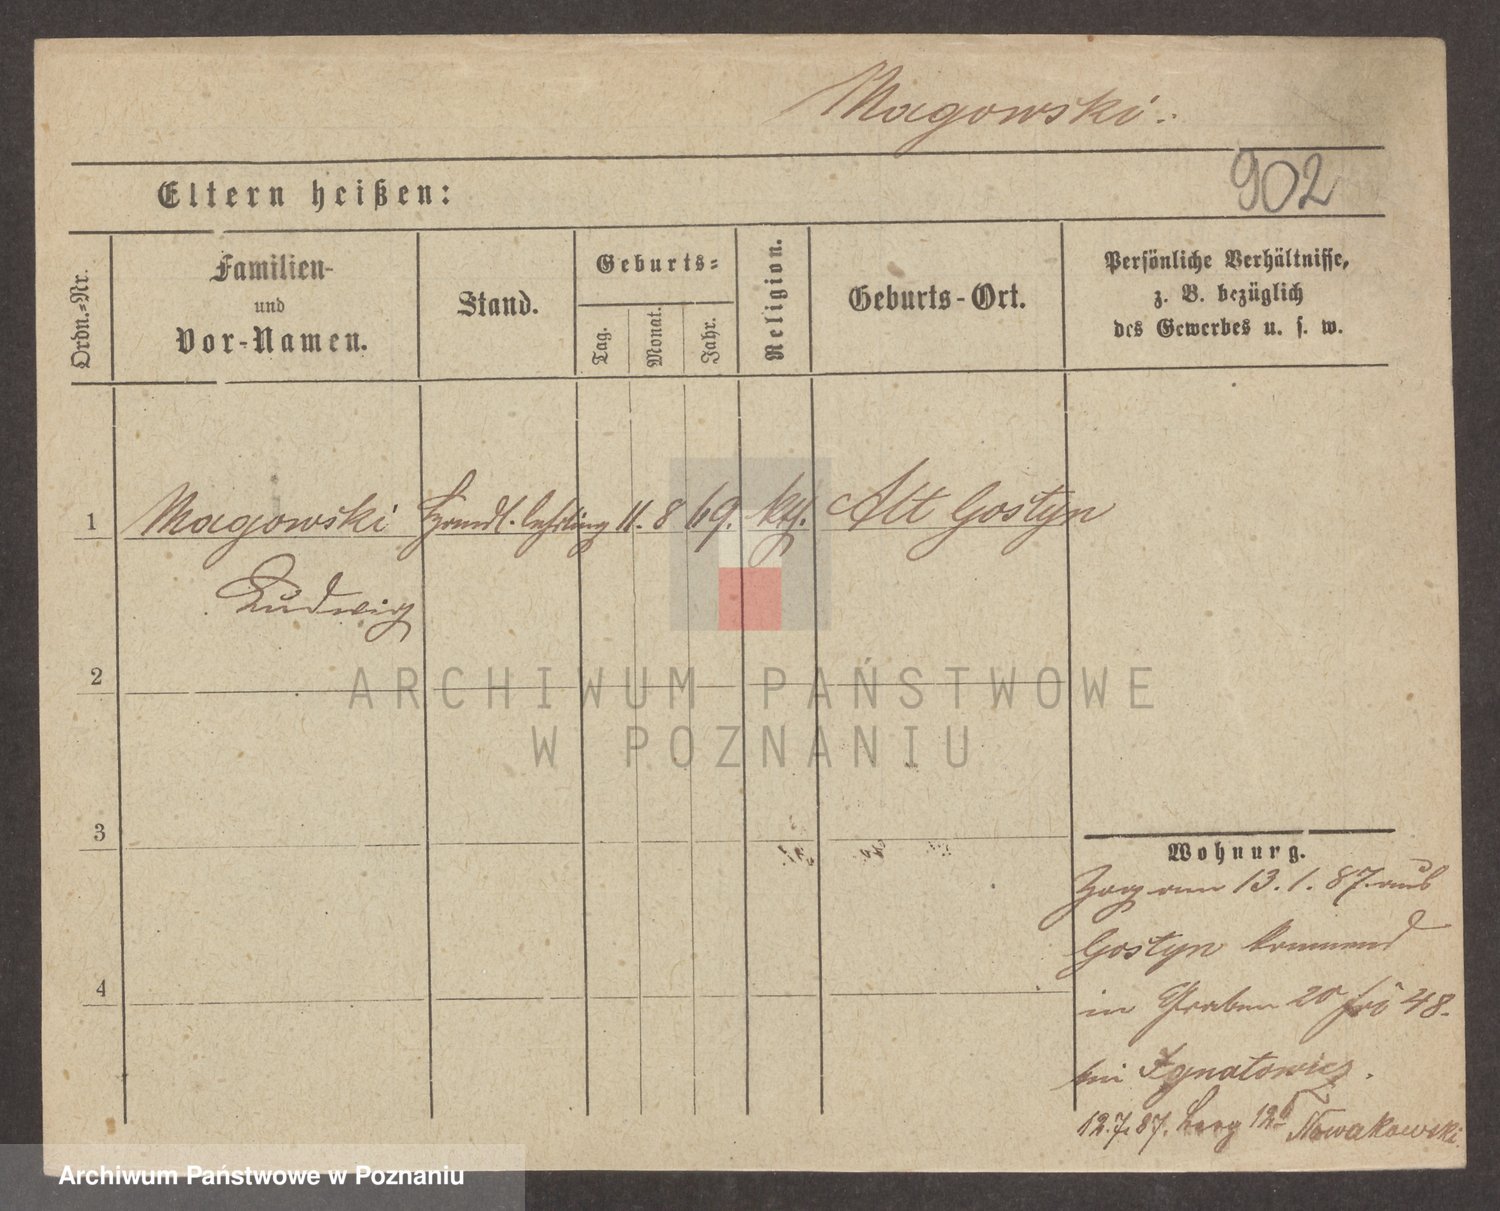 Magowski.
902
Eltern heißen:
Ordn.=Nr.
Familien-
und
Vor-Namen.
Stand.
Geburts=
Tag.
Monat.
Jahr.
Religion.
Geburts-Ort.
Persönliche Verhältnisse,
z. B. bezüglich
des Gewerbes u. s. w.
1 Magowski Handl. Lehrling 11. 8 69. kth. Alt Gostyn
Ludwig
2
3
4
Wohnung.
Zog am 13. 1. 87. aus
Gostyn kommend
in Graben 20 48.
bei Ignatowicz.
12.7.87. Berg 12b Nowakowski.
ARCHIWUM PAŃSTWOWE
W POZNANIU
Archiwum Państwowe w Poznaniu